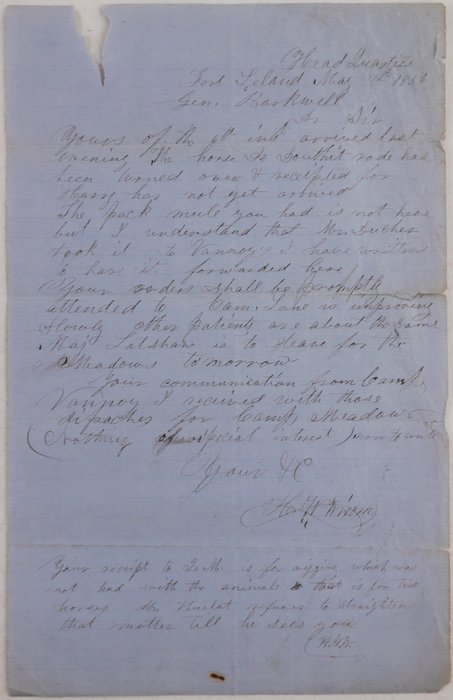 Head Quarters
Fort Leland May 7th 1856
Gen. Barkwell
Dr Sir
Yours of the 6th inst arrived last
evening The horse Southit rode has
been turned over & receipted for
Harry has not yet arrived
The pack mule you had is not here
but I understand that Mr.
took it to Vannoys I have written
to have it forwarded here
Your orders shall be promptly
attended to Cam. Lane is improving
slowly other patients are about the same
Maj Latshaw is to leave for the
Meadows tomorrow
Your communication from Camp
Vannoy I received with those
dispaches for Camp Meadow
(Nothing of special interest)
Your &C
H. W.
Your receipt to is for rigging which was
not had with the animals & that is for two
horses Mr. refuses to straighten
that matter till he sees you
H.W.